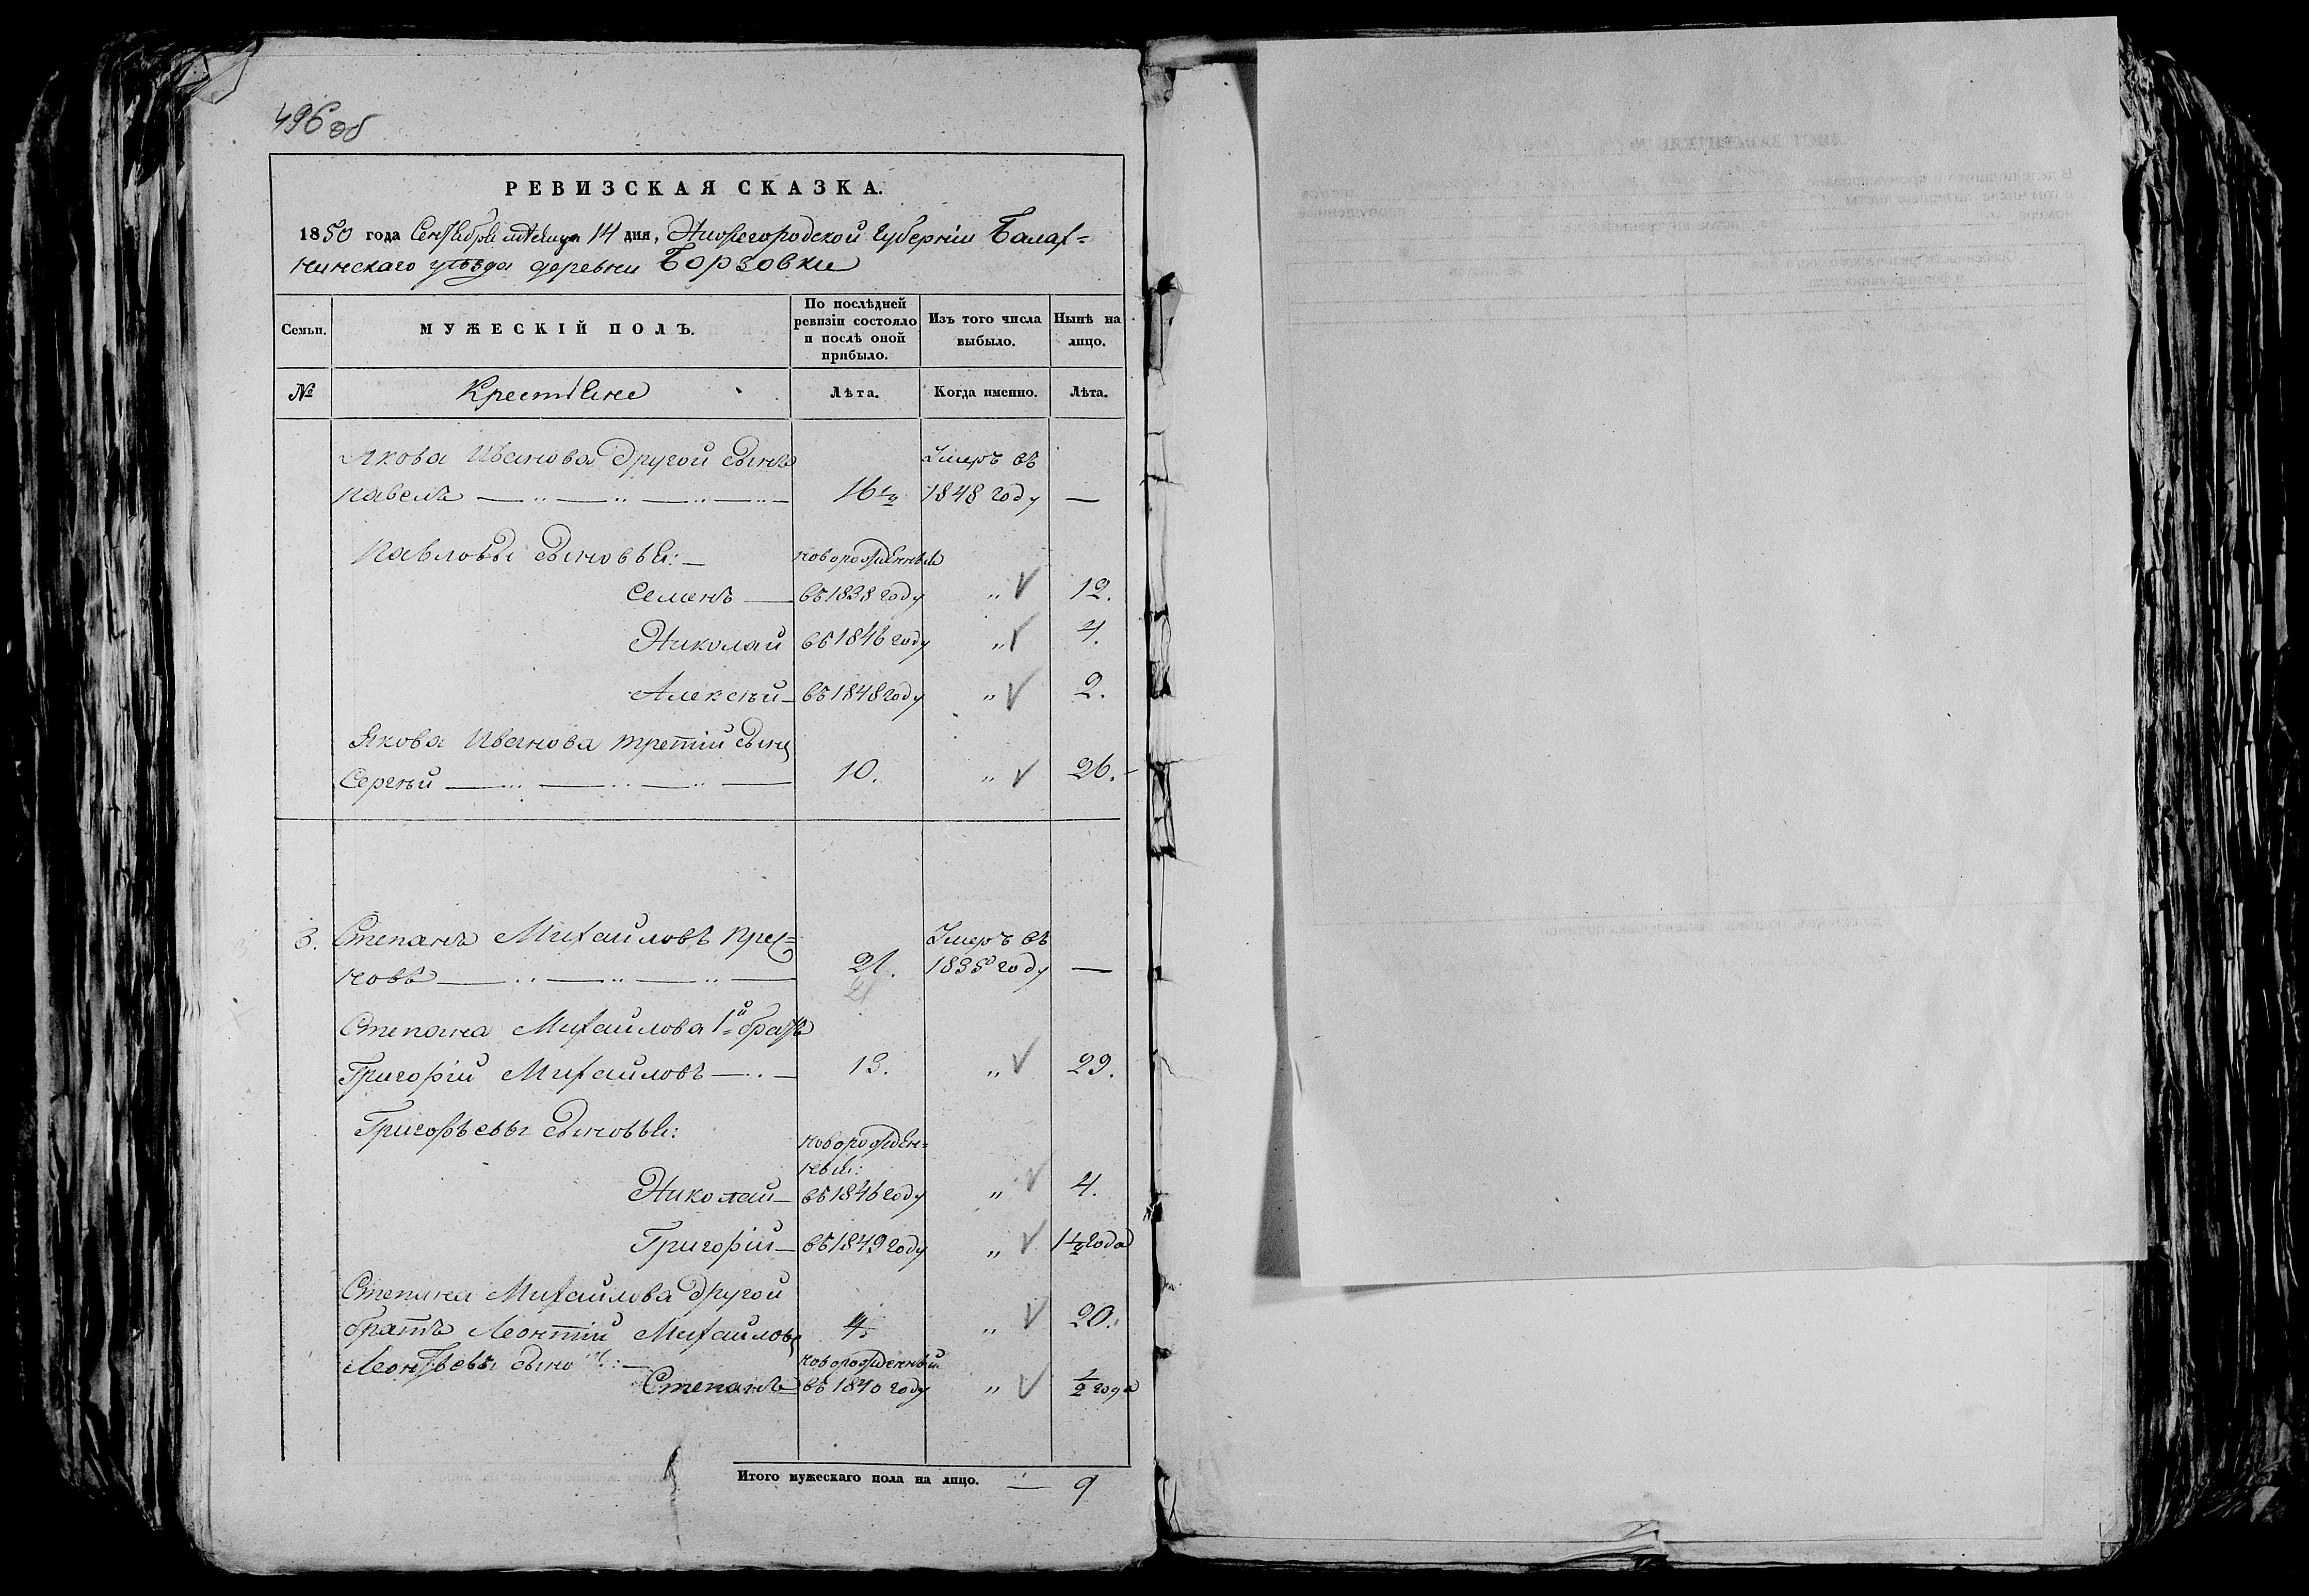 496 об
РЕВИЗСКАЯ СКАЗКА.
1850 года Сентября месяца 14 дня, Нижегородской Губерніи Балах=
нинскаго уѣзда деревни Борзовки
Семьи.
МУЖЕСКІЙ ПОЛЪ.
По послѣдней
ревизіи состояло
и послѣ оной
прибыло.
Изъ того числа
выбыло.
Нынѣ на
лицо.
№
Крестьяне
Лѣта.
Когда именно.
Лѣта.
Якова Иванова другой сынъ Умеръ въ
Павелъ 16½ 1848 году —
Павловы сыновья: новорожденныя
Семенъ въ 1838 году " 12.
Николай въ 1846 году " 4.
Алексѣй въ 1848 году " 2.
Якова Иванова третій сынъ
Сергѣй 10. " 26.
3. Степанъ Михайловъ Прес= Умеръ въ
новъ 21. 1835 году —
Степана Михайлова 1й братъ
Григорій Михайловъ 13. " 29.
Григорьевы сыновья: новорожден=
ныя:
Николай въ 1846 году " 4.
Григорій въ 1849 году " 1½ года
Степана Михайлова другой
братъ Леонтій Михайловъ 4. " 20.
Леонтьевъ сынъ: новорожденный
Степанъ въ 1840 году " ½ года
Итого мужескаго пола на лицо. — 9